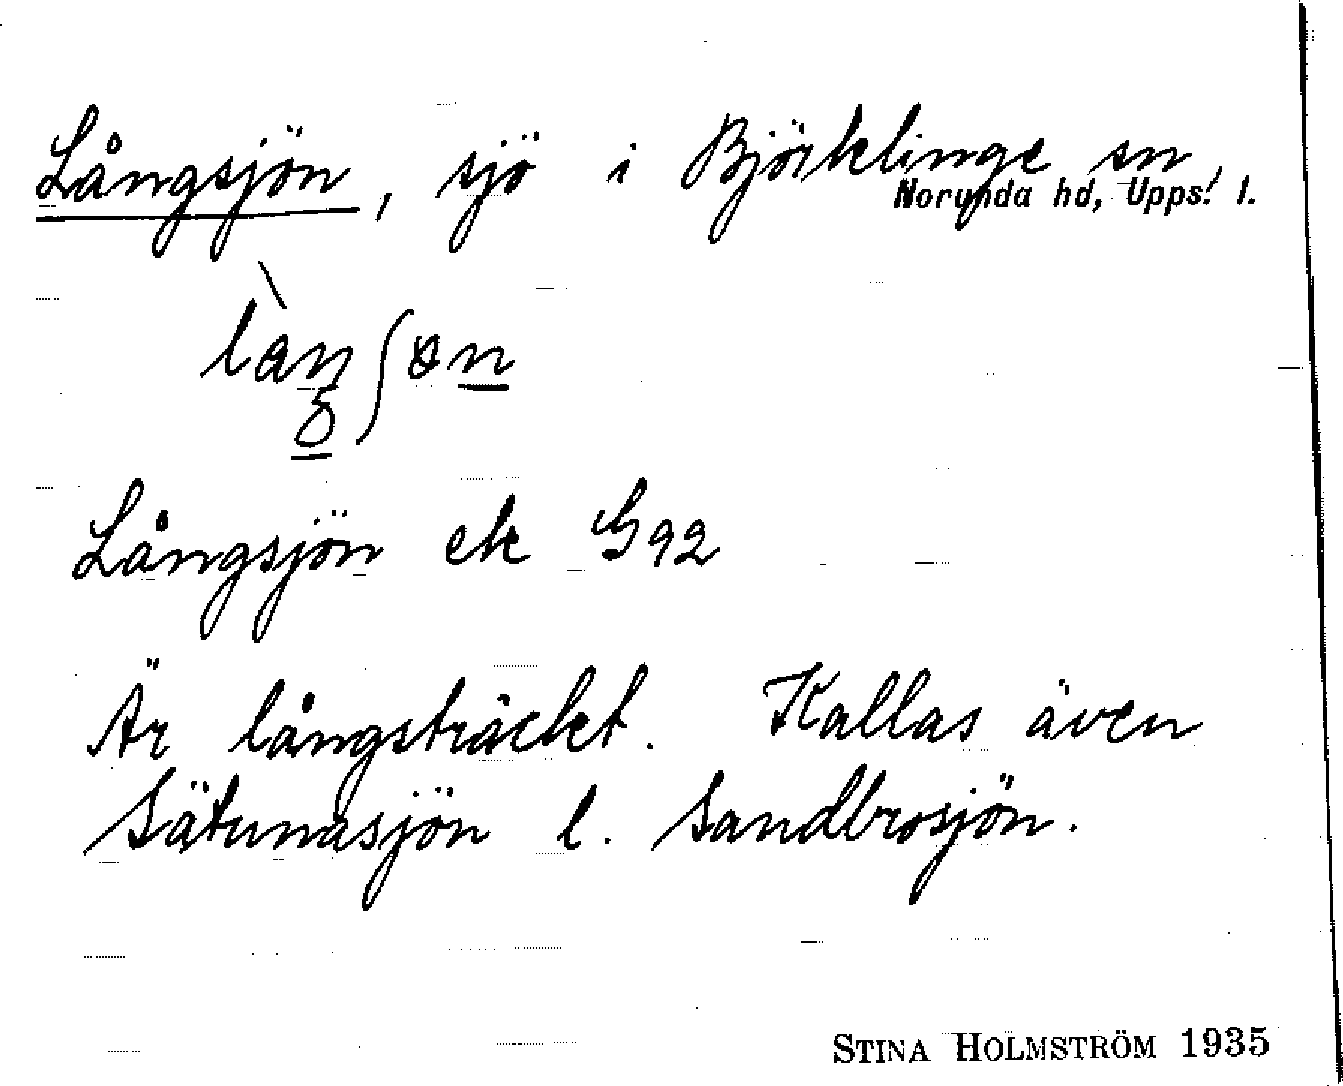 Långsjön, sjö i Björklinge sn,
Norunda hd, Upps. l.
Långsjön ek G92
Är långsträckt. Kallas även
Sätunasjön l. Sandbrosjön.
STINA HOLMSTRÖM 1935